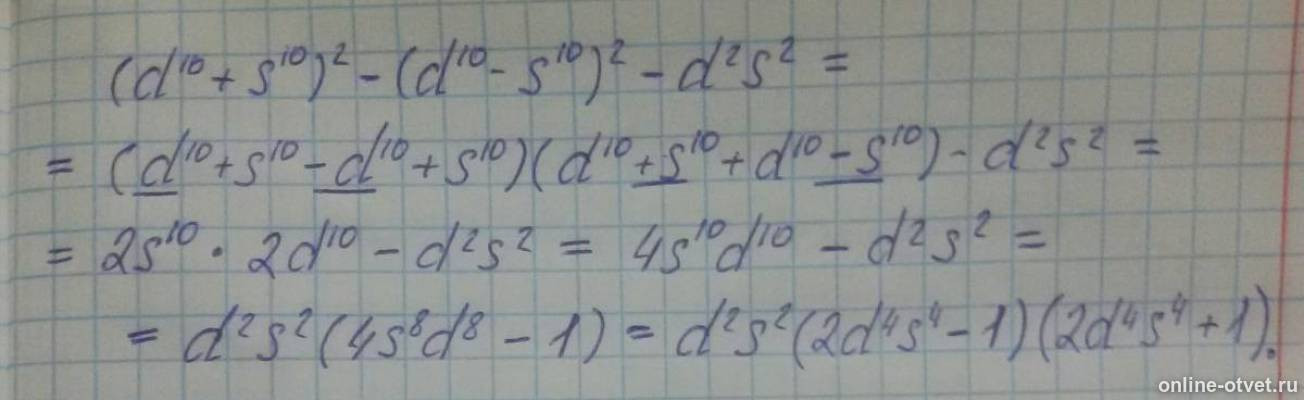 (d¹⁰ + s¹⁰)² - (d¹⁰ - s¹⁰)² - d²s² =
= (d¹⁰ + s¹⁰ - d¹⁰ + s¹⁰)(d¹⁰ + s¹⁰ + d¹⁰ - s¹⁰) - d²s² =
= 2s¹⁰ · 2d¹⁰ - d²s² = 4s¹⁰d¹⁰ - d²s² =
= d²s²(4s⁸d⁸ - 1) = d²s²(2d⁴s⁴ - 1)(2d⁴s⁴ + 1).
online-otvet.ru